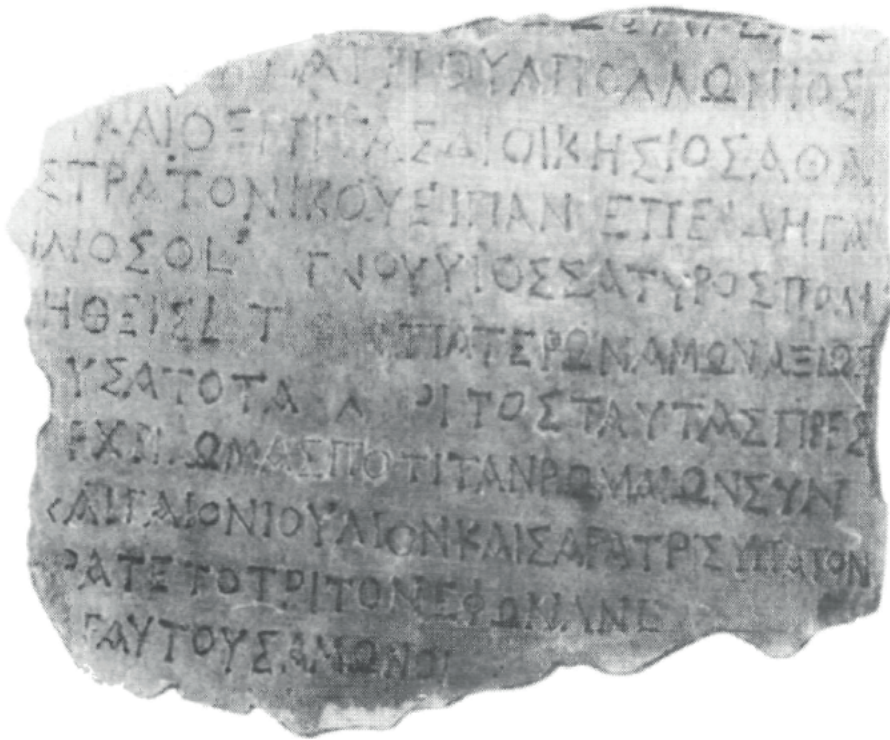 ΟΥΑΠΟΛΛΩΝΙΟΣ
ΚΑΙΟΕΠΙΤΑΣΔΙΟΙΚΗΣΙΟΣΑΘΑ
ΣΤΡΑΤΟΝΙΚΟΥΕΙΠΑΝ ΕΠΕΙΔΗΓΑ
ΛΙΟΣΘΕ ΓΝΟΥΥΙΟΣΣΑΤΥΡΟΣΠΟΛΙ
ΗΘΕΙΣ Τ ΠΑΤΕΡΩΝΑΜΩΝΑΞΙΩΣ
ΥΣΑΤΟΤΑ Λ ΡΙΤΟΣΤΑΥΤΑΣΠΡΕΣ
ΕΧΡΙ ΩΜΑΣΠΟΤΙΤΑΝΡΩΜΑΙΩΝΣΥΝ
ΚΑΙΓΑΙΟΝΙΟΥΛΙΟΝΚΑΙΣΑΡΑΤΡΣΥΠΑΤΟΝ
ΡΑΤΕΤΟΤΡΙΤΟΝΕΦΩΝΑΝΕ
ΑΥΤΟΥΣΑΜΩΝΟΙ